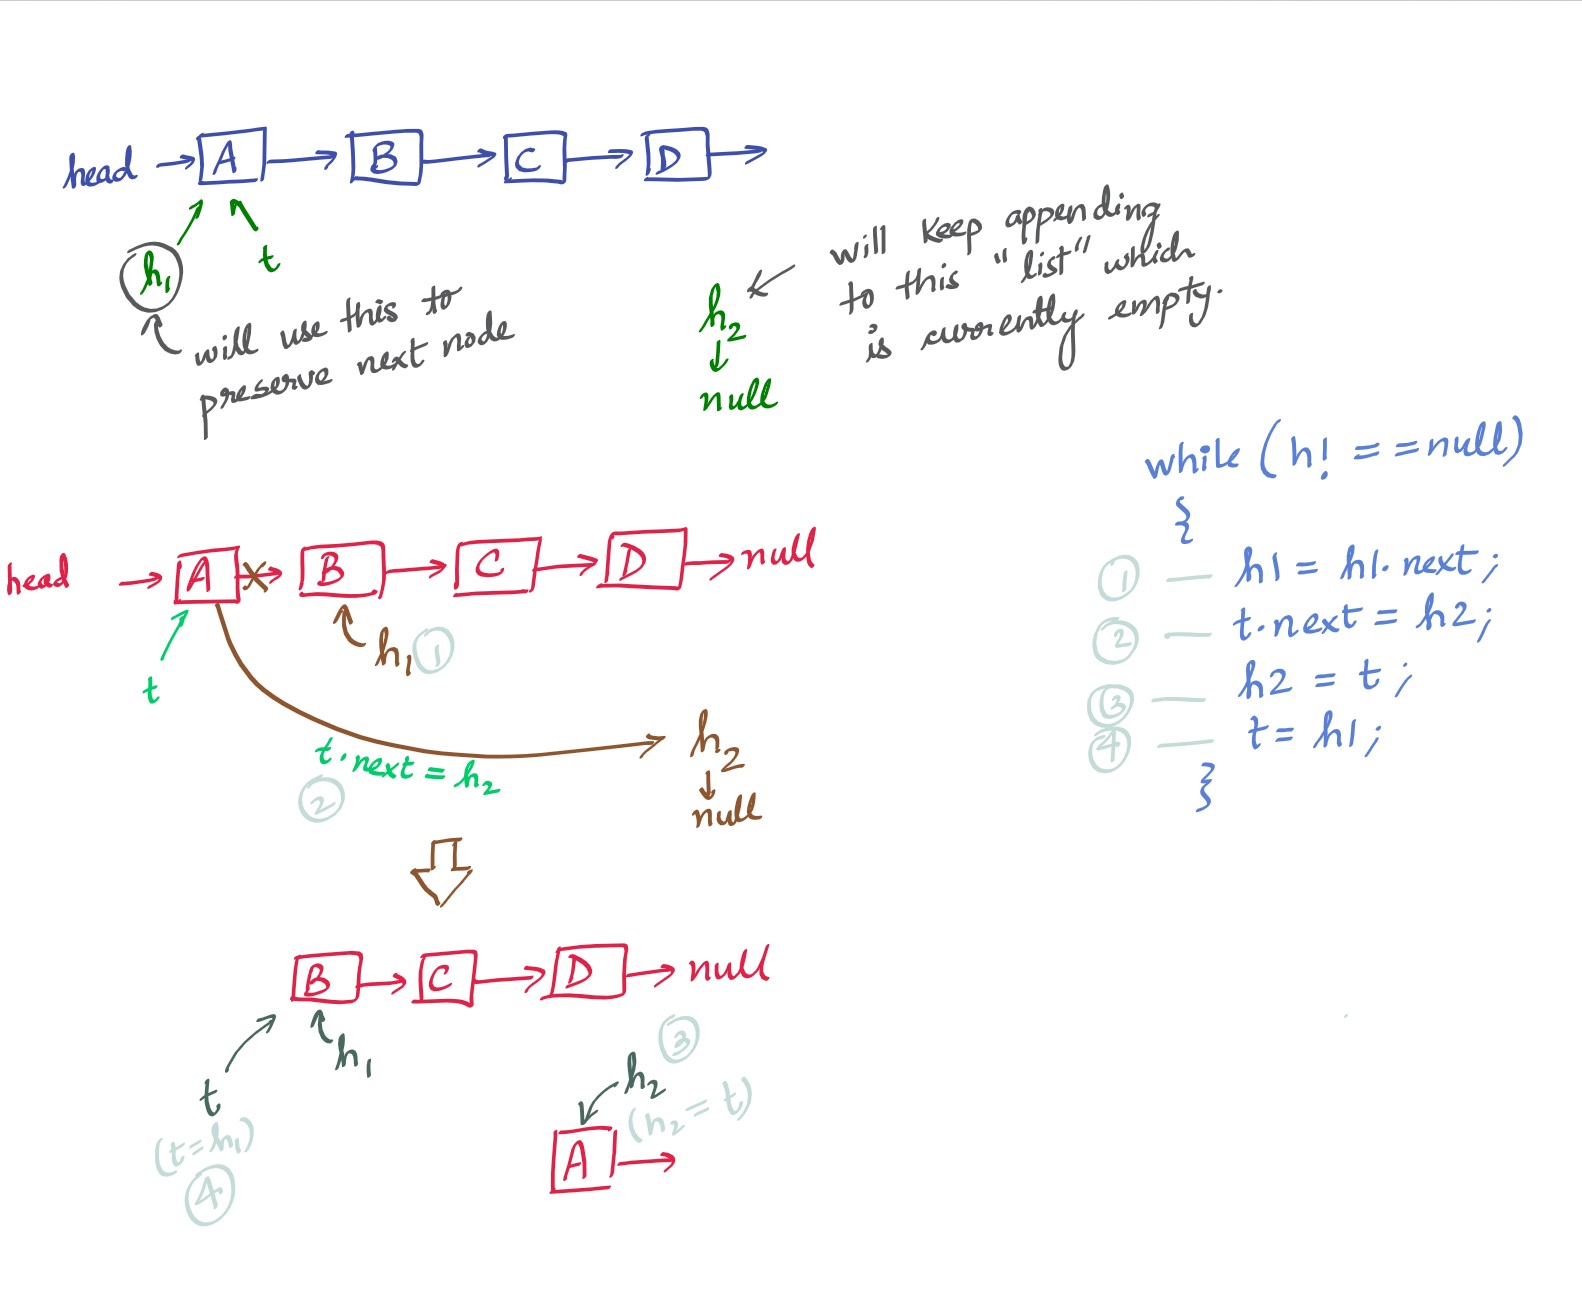 head → A → B → C → D →
h1 t
will use this to
preserve next node
will keep appending
to this "list" which
is currently empty.
h2
↓
null
while (h! == null)
{
① — h1 = h1. next;
② — t.next = h2;
③ — h2 = t;
④ — t = h1;
}
head → A → B → C → D → null
h1 ①
t
t.next = h2
②
h2
↓
null
B → C → D → null
h1
t
(t=h1)
④
h2 ③
(h2 = t)
A →